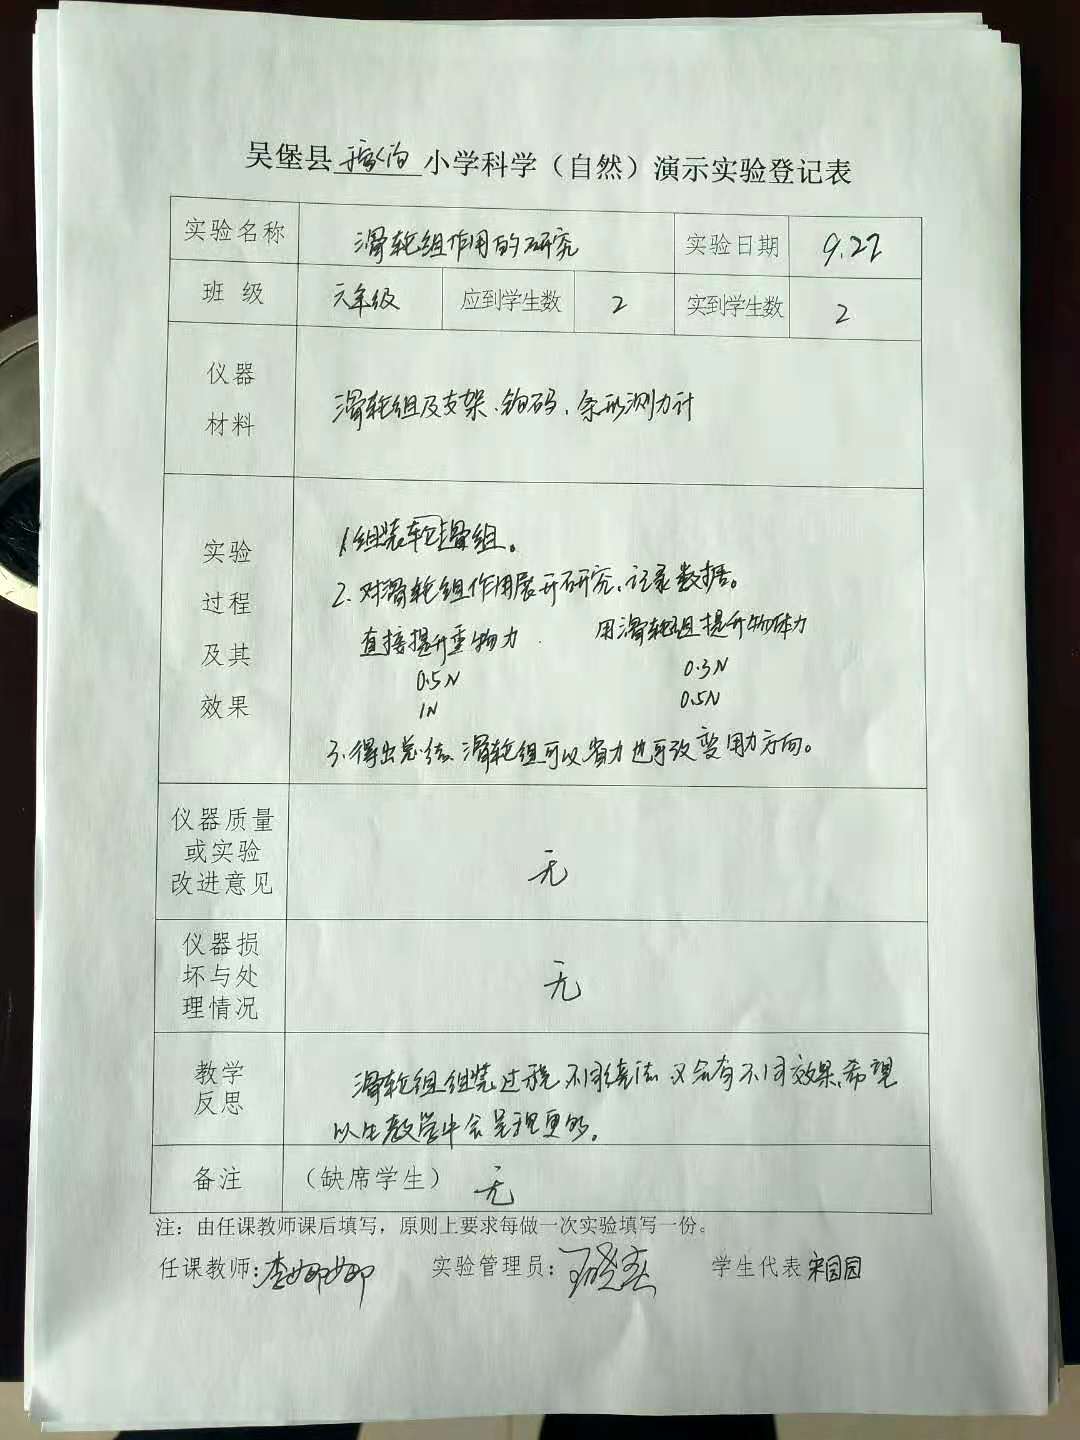 吴堡县 小学科学（自然）演示实验登记表
实验名称 滑轮组作用的研究 实验日期 9.22
班 级 六年级 应到学生数 2 实到学生数 2
仪器
材料
滑轮组及支架、钩码、条形测力计
实验
过程
及其
效果
1.组装轮滑组。
2.对滑轮组作用展开研究,记录数据。
直接提升重物力 用滑轮组提升物体力
0.5N 0.3N
1N 0.5N
3.得出总结、滑轮组可以省力也可改变用力方向。
仪器质量
或实验
改进意见
无
仪器损
坏与处
理情况
无
教学
反思
滑轮组组装过程不同绕法又会有不同效果,希望
以后教学中会呈现更多。
备注 （缺席学生） 无
注：由任课教师课后填写，原则上要求每做一次实验填写一份。
任课教师：李娜娜 实验管理员： 学生代表 宋园园